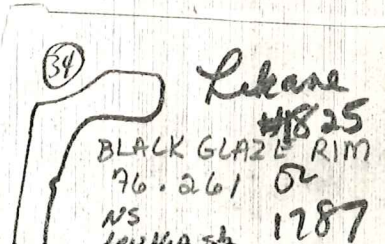 34
Lekane
#1825
BLACK GLAZE RIM
76.261 or
NS 1787